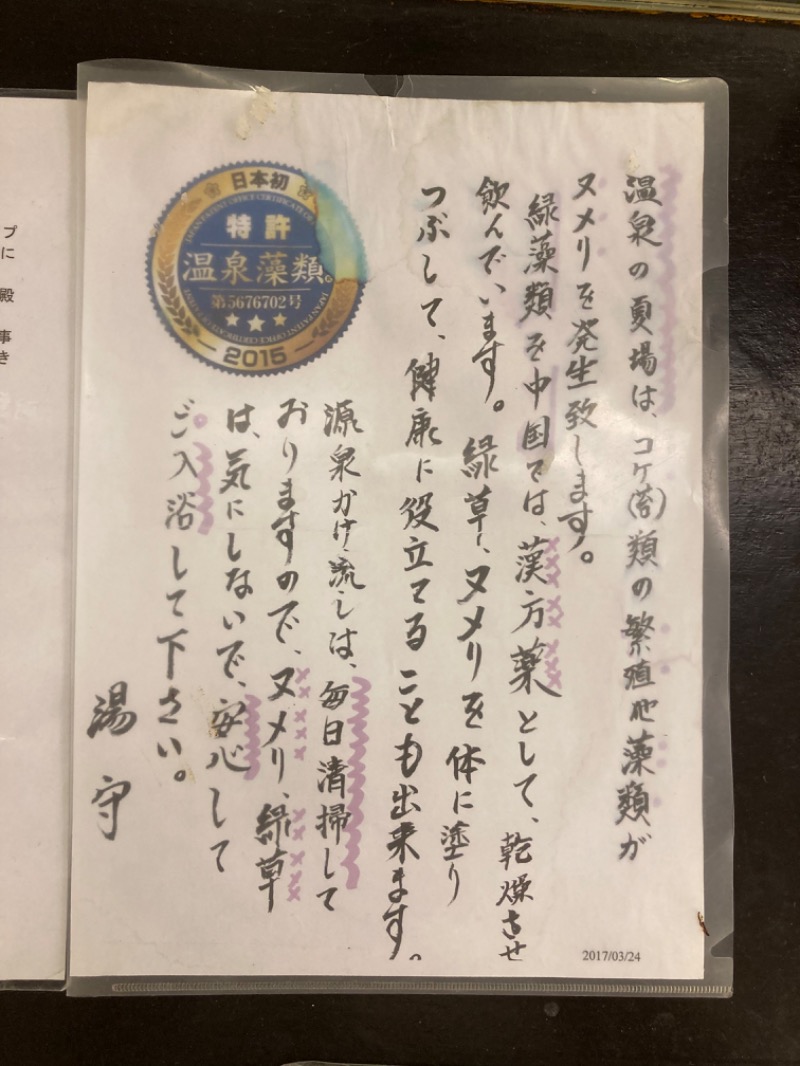 温泉の夏場は、コケ(苔)類の繁殖や藻類が
ヌメリを発生致します。
緑藻類を中国では、漢方薬として、乾燥させ
飲んでいます。緑草、ヌメリを体に塗り
つぶして、健康に役立てることも出来ます。
日本初
特許
温泉藻類®
第5676702号
2015
源泉かけ流しは、毎日清掃して
おりますので、ヌメリ、緑草
は、気にしないで、安心して
ご入浴して下さい。
湯守
2017/03/24
プ
に
殿
事
き